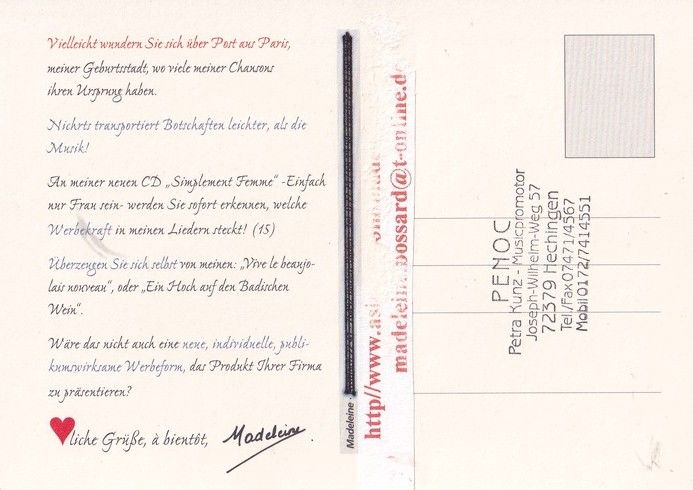 Vielleicht wundern Sie sich über Post aus Paris,
meiner Geburtsstadt, wo viele meiner Chansons
ihren Ursprung haben.
Nichrts transportiert Botschaften leichter, als die
Musik!
An meiner neuen CD „Simplement Femme“ -Einfach
nur Frau sein- werden Sie sofort erkennen, welche
Werbekraft in meinen Liedern steckt! (15)
Überzeugen Sie sich selbst von meinen: „Vive le beaujo-
lais nouveau“, oder „Ein Hoch auf den Badischen
Wein“.
Wäre das nicht auch eine neue, individuelle, publi-
kumswirksame Werbeform, das Produkt Ihrer Firma
zu präsentieren?
liche Grüße, à bientôt, Madeleine
Madeleine
http//www.asi
madeleine.bossard@t-online.d
PENOC
Petra Kunz - Musicpromotor
Joseph-Wilhelm-Weg 57
72379 Hechingen
Tel./Fax 07471/4567
Mobil 0172/7414551